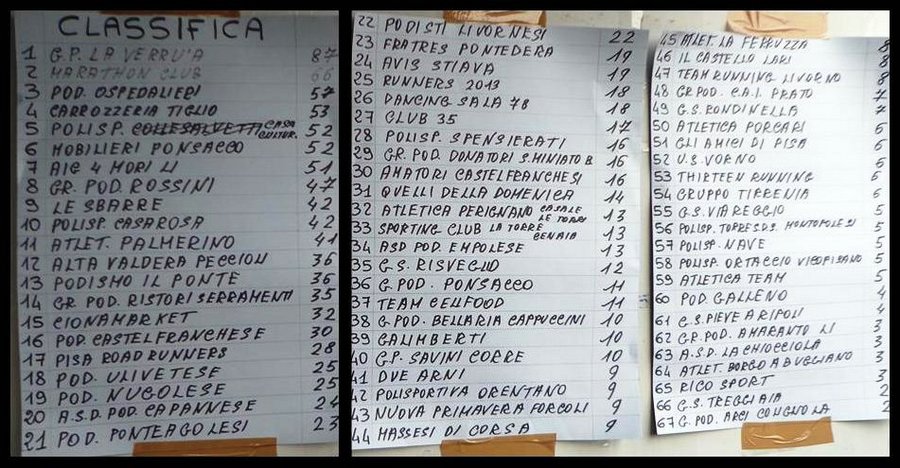 CLASSIFICA
1 G.P. LA VERRU'A 87
2 MARATHON CLUB 66
3 POD. OSPEDALIERI 57
4 CARROZZERIA TIGLIO 53
5 POLISP. COLLESALVETTI CASA CULTUR. 52
6 MOBILIERI PONSACCO 52
7 AIG 4 MORI LI 51
8 GR. POD. ROSSINI 47
9 LE SBARRE 42
10 POLISP. CASAROSA 42
11 ATLET. PALMERINO 41
12 ALTA VALDERA PECCIOLI 36
13 PODISMO IL PONTE 36
14 GR POD. RISTORI SERRAMENTI 35
15 CIONAMARKET 32
16 POD. CASTELFRANCHESE 30
17 PISA ROAD RUNNERS 28
18 POD. ULIVETESE 25
19 POD. NUGOLESE 25
20 A.S.D. POD. CAPANNESE 24
21 POD. PONTEAGOLESI 23
22 PODISTI LIVORNESI 22
23 FRATRES PONTEDERA 19
24 AVIS STIAVA 19
25 RUNNERS 2013 18
26 DANCING SALA 78 18
27 CLUB 35 17
28 POLISP. SPENSIERATI 16
29 GR. POD. DONATORI S. MINIATO B. 16
30 AMATORI CASTELFRANCHESI 16
31 QUELLI DELLA DOMENICA 14
32 ATLETICA PERIGNANO CASALE LE TORRI 13
33 SPORTING CLUB LA TORRE CENAIA 13
34 ASD POD. EMPOLESE 13
35 G.S. RISVEGLIO 12
36 G.POD. PONSACCO 11
37 TEAM CELLFOOD 11
38 G.POD. BELLARIA CAPPUCCINI 10
39 GALIMBERTI 10
40 G.P. SAVINI CORRE 10
41 DUE ARNI 9
42 POLISPORTIVA ORENTANO 9
43 NUOVA PRIMAVERA FORCOLI 9
44 MASSESI DI CORSA 9
45 ATLET. LA FERRUZZA 8
46 IL CASTELLO LARI 8
47 TEAM RUNNING LIVORNO 8
48 GR.POD. C.A.I. PRATO 7
49 G.S. RONDINELLA 7
50 ATLETICA PORCARI 6
51 GLI AMICI DI PISA 6
52 U.S. VORNO 6
53 THIRTEEN RUNNING 6
54 GRUPPO TIRRENIA 6
55 G.S. VIAREGGIO 5
56 POLISP. TORRES D.S. MONTOPOLESI 5
57 POLISP. NAVE 5
58 POLISP. ORTACCIO VICOPISANO 5
59 ATLETICA TEAM 5
60 POD. GALLENO 4
61 G.S. PIEVE A RIPOLI 4
62 GR.POD. AMARANTO LI 3
63 A.S.D. LA CHIOCCIOLA 3
64 ATLET. BORGO A BUGGIANO 3
65 RICO SPORT 3
66 G.S. TREGGIAIA 2
67 G. POD. ARCI COLIGNOLA 2